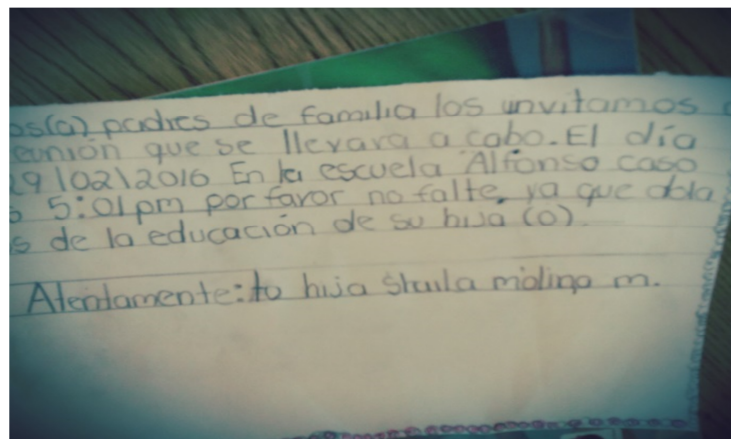 os(a) padres de familia los invitamos a
eunión que se llevara a cabo. El día
29/02/2016 En la escuela Alfonso caso
s 5:01 pm por favor no falte, ya que abla
s de la educación de su hija (o).
Atentamente: tu hija Sheila molina m.